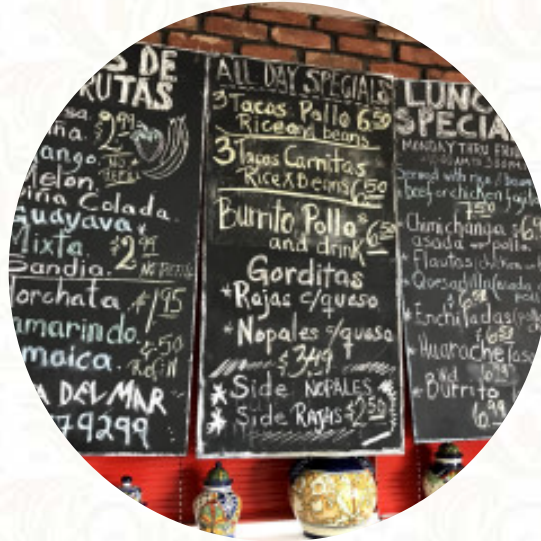 S DE
RUTAS
$2.99
ango.
NO REFILL
Melón.
iña Colada.
Guayava
Mixta $2.99
Sandia. NO REFILL
orchata $1.95
amarindo.
maica. .50 Refill
A DEL MAR
79299
ALL DAY SPECIALS
3 Tacos Pollo 6.50
Rice and beans
3 Tacos Carnitas
Rice & Beans 6.50
Burrito Pollo
and drink 6.50
Gorditas
*Rajas c/queso
*Nopales c/queso
$3.49
*Side NOPALES
*Side RAJAS $2.50
LUNC
SPECIA
MONDAY THRU FRI
served with rice & beans
beef or chicken fajita
7.50
*Chimichanga $6.9
asada or pollo.
*Flautas chicken
*Quesadilla
*Enchiladas
*Huarache
*Burrito
6.99